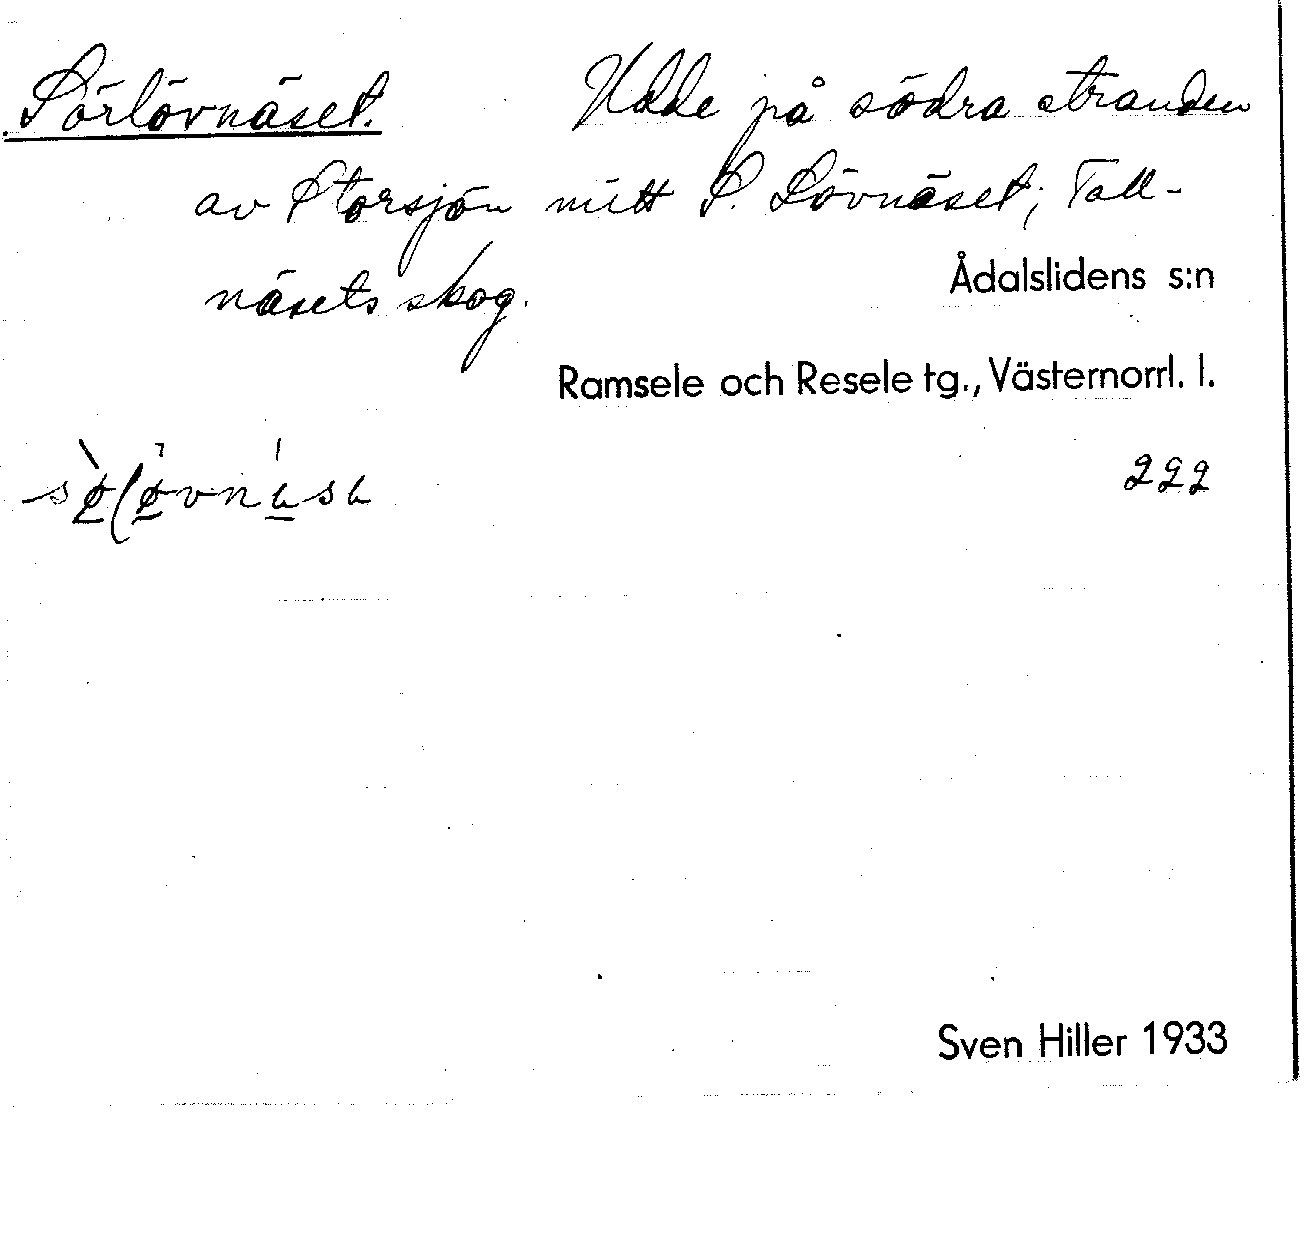 Sörlövnäset. Udde på södra stranden
av Storsjön mitt S. Lövnäset; Tall-
näsets skog.
Ådalslidens s:n
Ramsele och Resele tg., Västernorrl. l.
222
Sven Hiller 1933